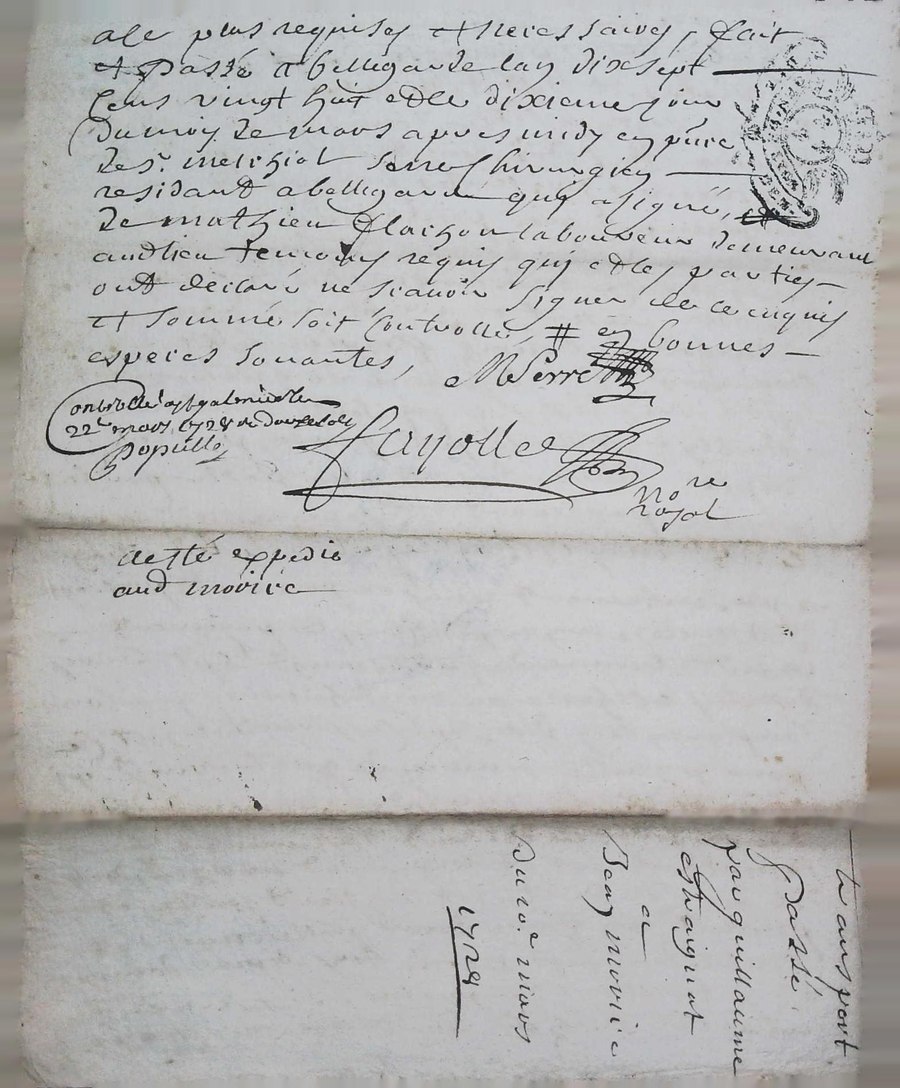 ale plus requises et necessaires, fait
et passé a bellegarde lan dixsept
cens vingt huit et le dixieme jour
du moy de mars apres midy en pnce
de sr. melchiol serre chirurgien
residant a bellegarde quy a signé,
de mathieu flachon laboureur demeurant
audlieu temoins requis quy et les parties
ont declaré ne scavoir signer de ce enquis
et sommé soit controllé, # en bonnes
especes sonantes, MSerre
Controllé a
22e mars 1728 re douze sols
Populle
Fayolle
nore
royal
aesté expedié
aud moviré
transport
passé
par guillaume
estraignat
a
Jean moviré
Du 10e mars
1728